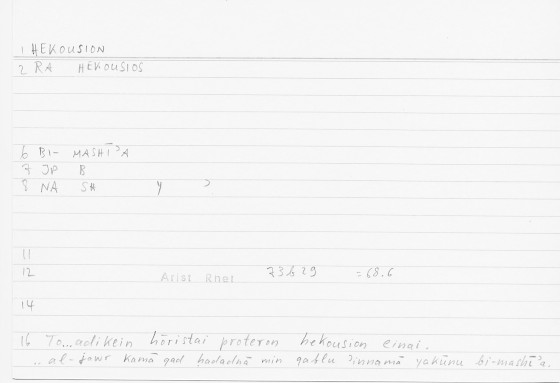 1 HEKOUSION
2 RA HEKOUSIOS
6 BI- MASHĪʾA
7 JP B
8 NA SH Y ʾ
11
12 Arist Rhet 73b29 = 68.6
14
16 To...adikein hōristai proteron hekousion einai.
.. al-jawr kamā qad ḥadadnā min qablu ʾinnamā yakūnu bi-mashīʾa.